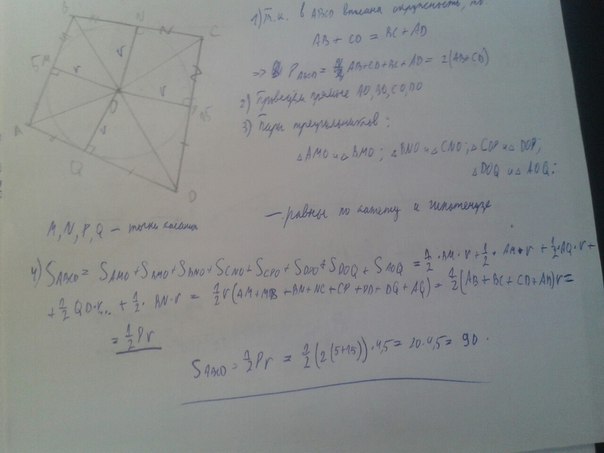 B
N
C
M
r
r
P
O
r
r
A
Q
D
1) Т.к. в ABCD вписана окружность, то
AB + CD = BC + AD
=> P ABCD = AB+CD+BC+AD = 2(AB+CD)
2) Проведем прямые AO, BO, CO, DO
3) Пары треугольников:
△AMO и △BMO; △BNO и △CNO; △COP и △DOP,
△DOQ и △AOQ;
M, N, P, Q — точки касания
— равны по катету и гипотенузе
4) S ABCD = S AMO + S BMO + S BNO + S CNO + S CPO + S DPO + S DOQ + S AOQ = 1/2 · BM · r + 1/2 · AM · r + 1/2 · AQ · r +
+ 1/2 QD · r ... + 1/2 · BN · r = 1/2 r (AM + MB + BN + NC + CP + PD + DQ + AQ) = 1/2 (AB + BC + CD + AD) r =
= 1/2 Pr
S ABCD = 1/2 Pr = 1/2 (2(5+15)) · 4,5 = 20 · 4,5 = 90.